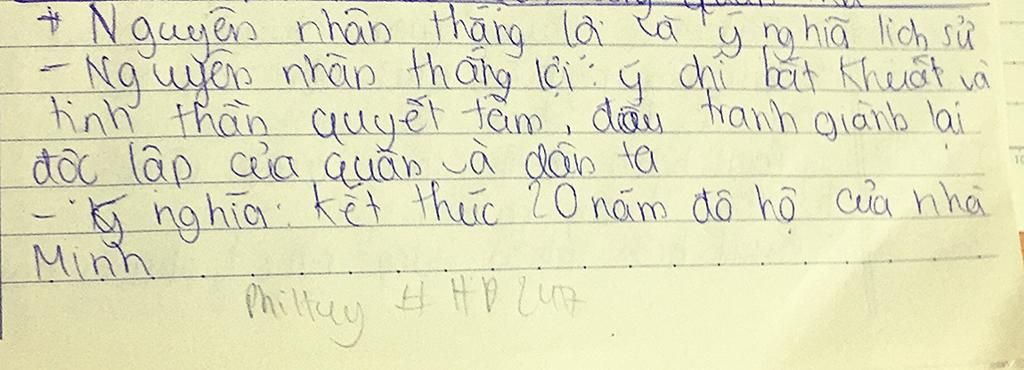 + Nguyên nhân thắng lợi và ý nghĩa lịch sử
- Nguyên nhân thắng lợi: ý chí bất khuất và
tinh thần quyết tâm, đấu tranh giành lại
độc lập của quân và dân ta
- Ý nghĩa: Kết thúc 20 năm đô hộ của nhà
Minh